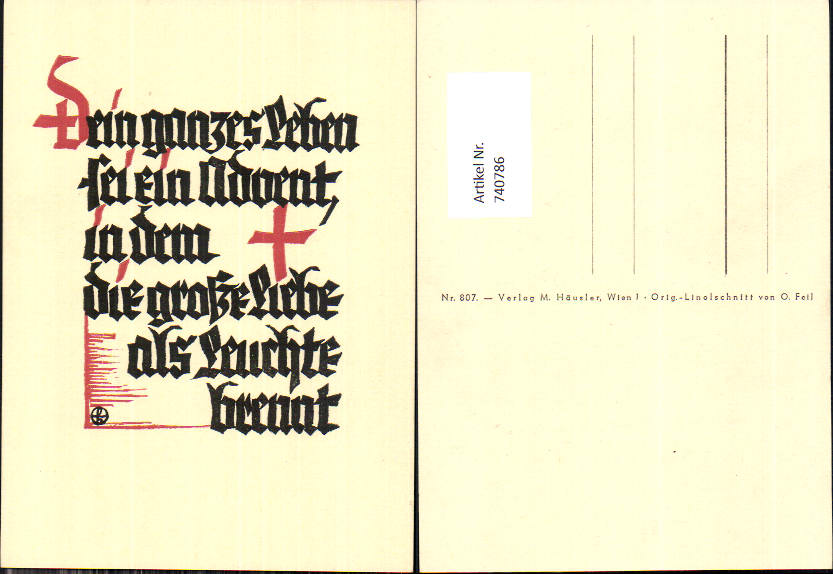 Dein ganzes Leben
sei ein Advent,
in dem
die große Liebe
als Leuchte
brennt
Artikel Nr.
740786
Nr. 807. — Verlag M. Häusler, Wien I · Orig.-Linolschnitt von O. Feil